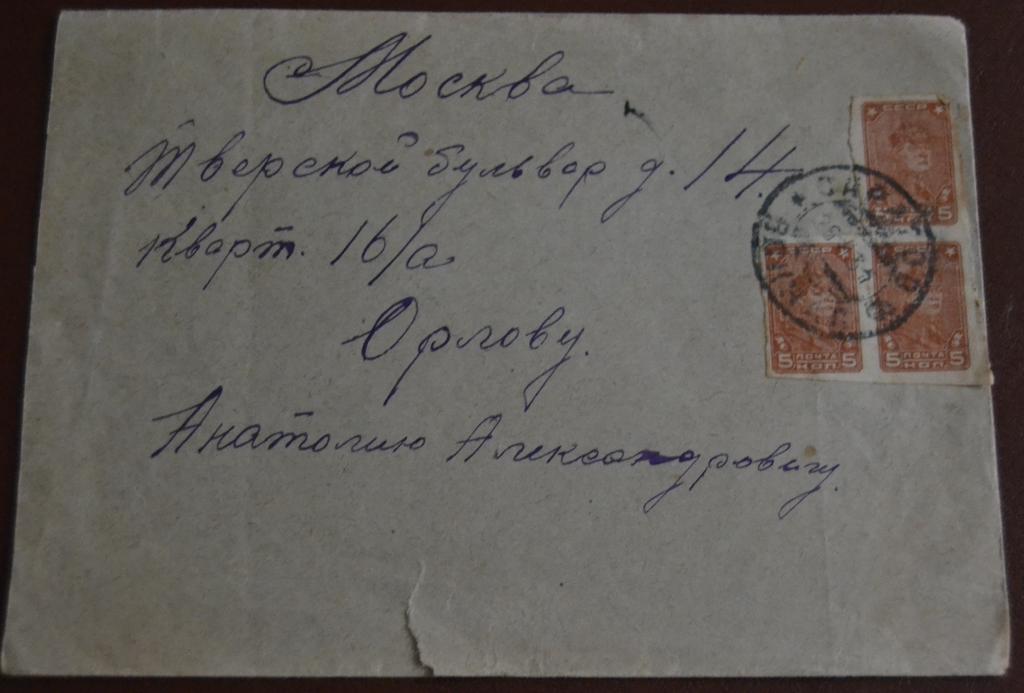 Москва
Тверской бульвар д. 14.
Кварт. 16/а
Орлову.
Анатолию Александровичу.
СССР
5
5 ПОЧТА 5
КОП.
5 ПОЧТА 5
КОП.